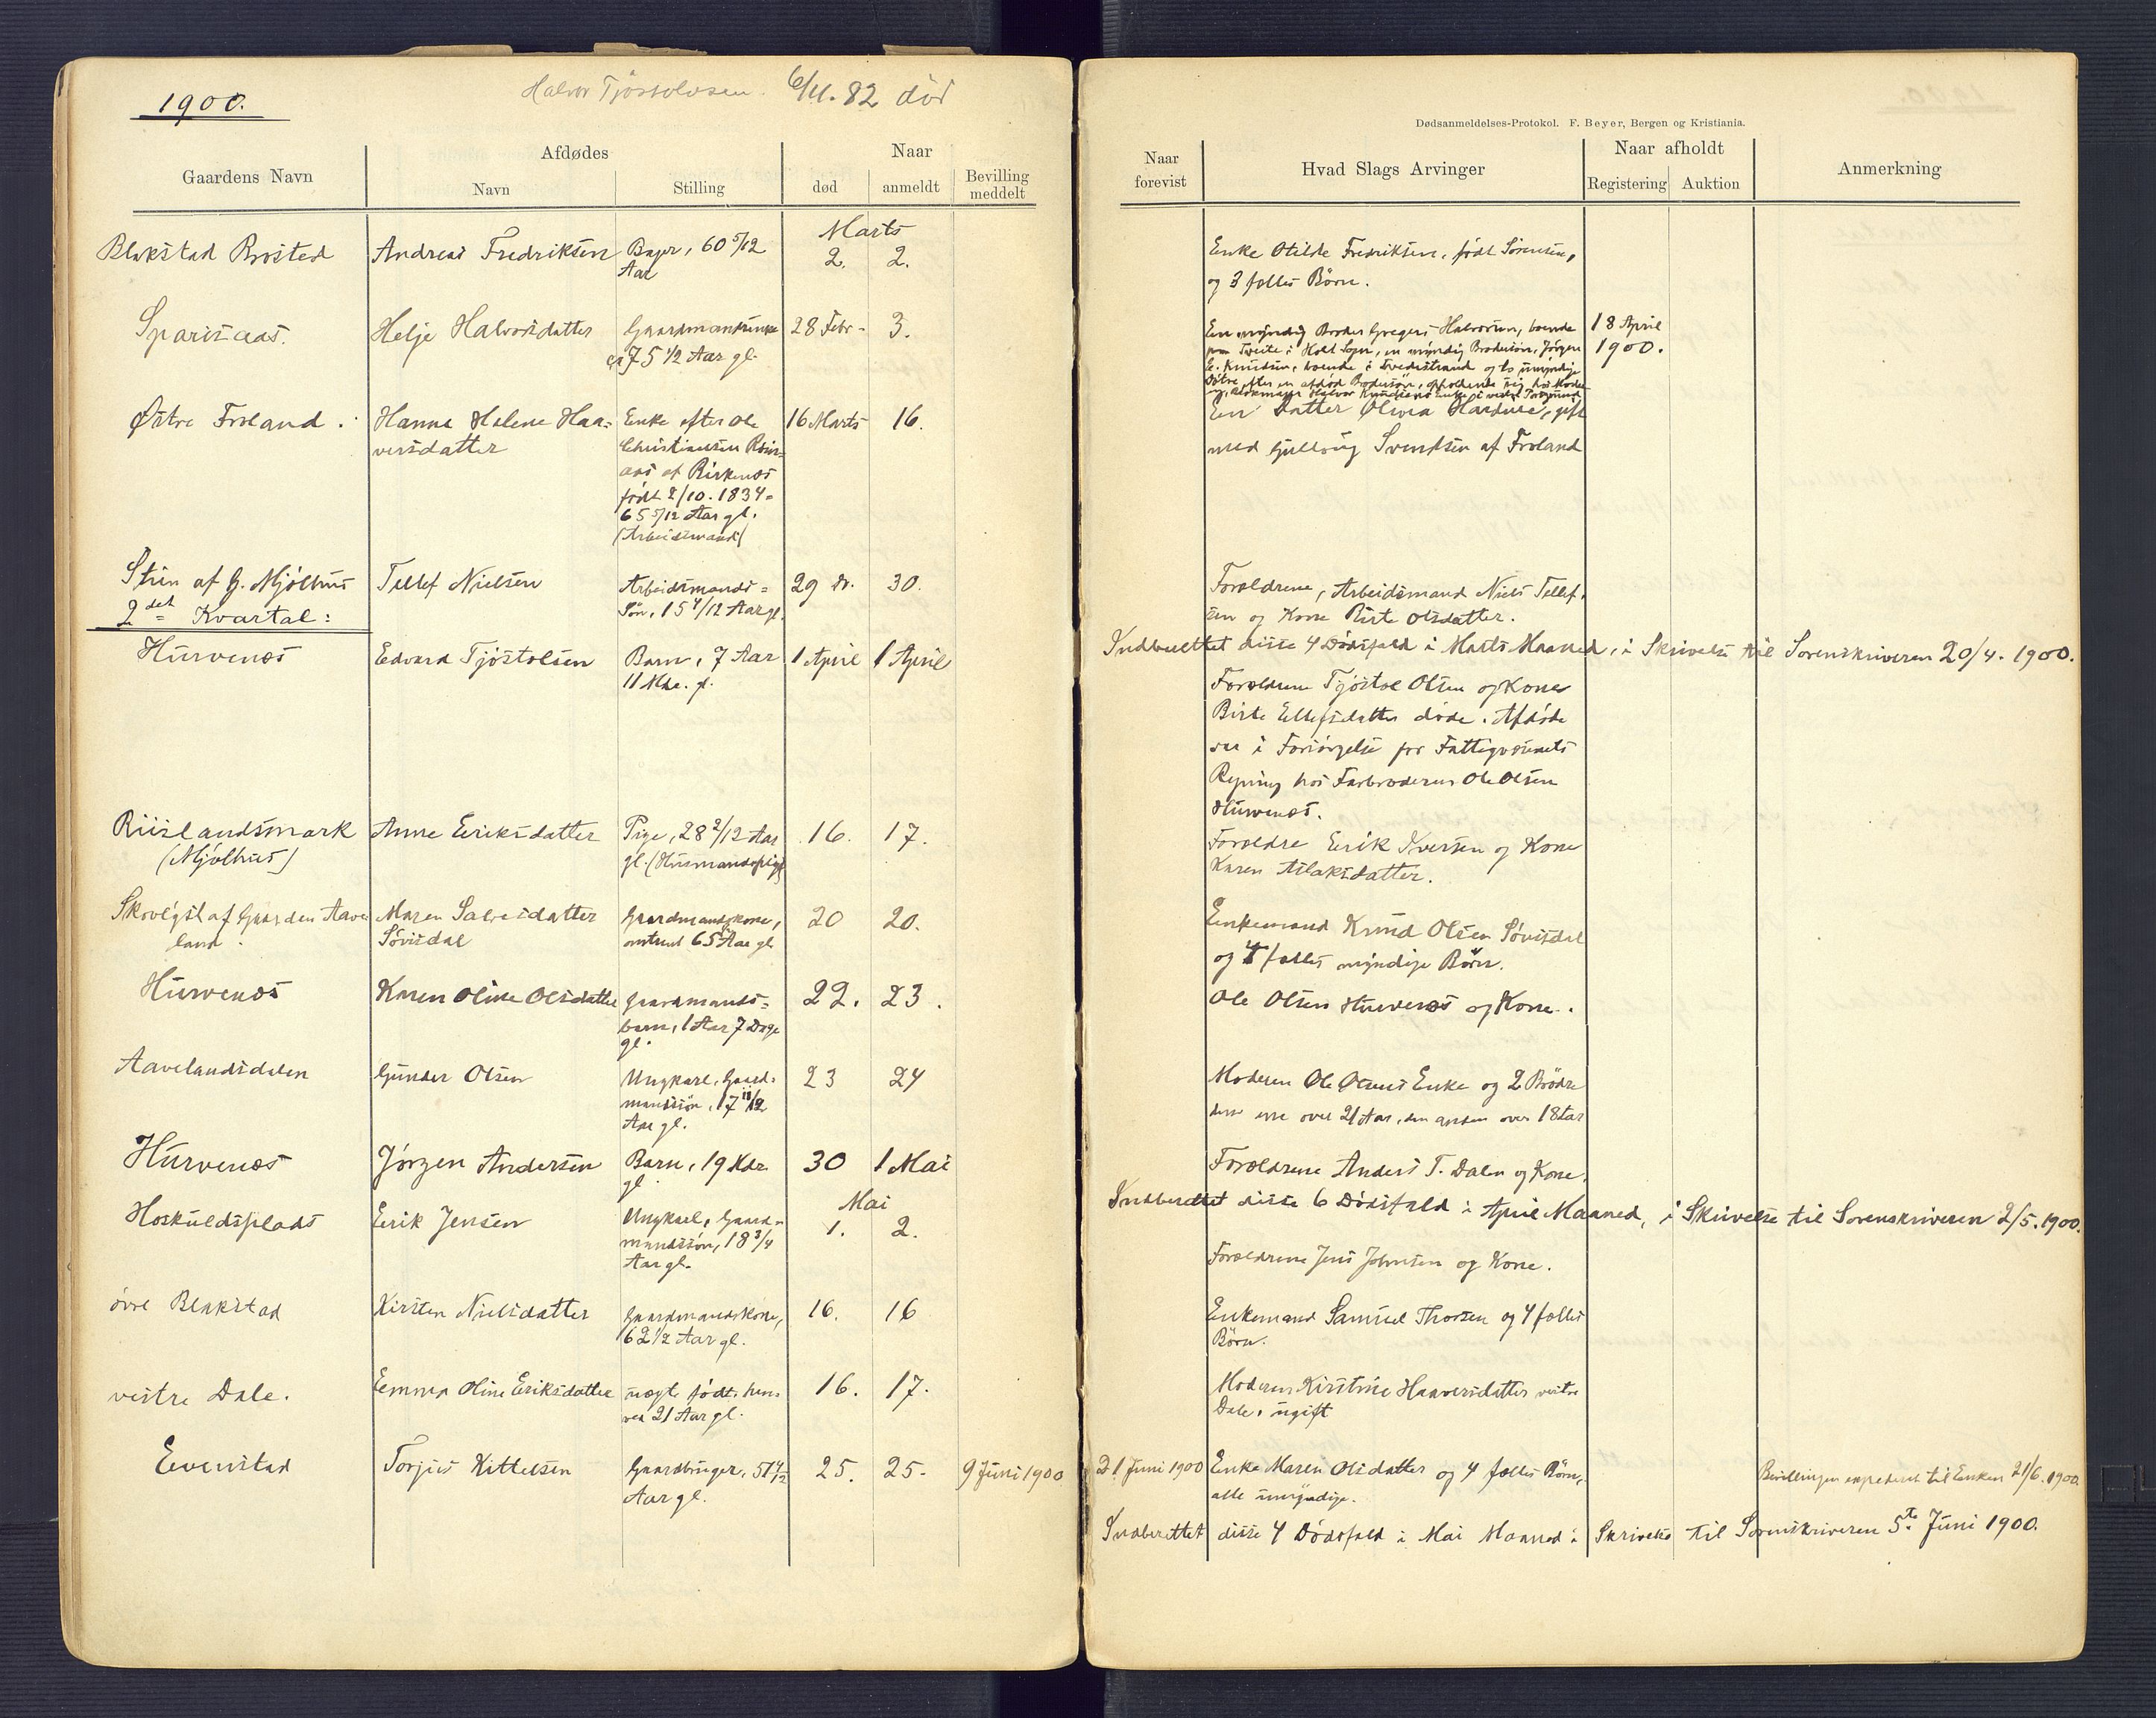 1900.
Halvor Tjøstolvsen. 6/11. 82 død
Dødsanmeldelses-Protokol. F. Beyer, Bergen og Kristiania.
Gaardens Navn
Afdødes
Navn
Stilling
Naar
død
anmeldt
Bevilling
meddelt
Naar
forevist
Hvad Slags Arvinger
Naar afholdt
Registering
Auktion
Anmerkning
Marts
Blakstad Brosted
Andreas Fredriksen
Bager, 60 5/12
Aar
2.
2.
Enke Otilde Fredriksen, født Sørensen,
og 3 fælles Børn.
Sparsaas.
Helje Halvorsdatter
Gaardmandsenke
ca 75 1/2 Aar gl.
28 Febr.
3.
En myndig Broder Gregers Halvorsen, boende
paa Tveite i Holt Sogn, en myndig Brodersøn, Jørgen
C. Knudsen, boende i Tvedestrand og to umyndige
Døtre efter en afdød Brodersøn, opholdende sig hos Moder
Halvor Knudsens Enke
18 April
1900.
Østre Froland.
Hanna Helene Haa-
versdatter
Enke efter Ole
Christiansen
aas af Birkenæs
født 2/10. 1834 =
65 5/12 Aar gl.
(Arbeidsmand)
16 Marts
16.
En Datter Olivia Hardine, gift
med Gullaug Svendsen af Froland
Stien af G. Mjølhus
Tellef Nielsen
Arbeidsmands-
Søn, 15 4/12 Aar gl.
29 do.
30.
Forældrene, Arbeidsmand Niels Tellef-
sen og Kone Birte Olsdatter.
2det Kvartal:
Indberettet disse 4 Dødsfald i Marts Maaned, i Skrivelse til Sorenskriveren 20/4. 1900.
Hurvenes
Edvard Tjøstolsen
Barn, 7 Aar
11 Mdr. gl.
1 April
1 April
Forældrene Tjøstol Olsen og Kone
Birte Ellefsdatter døde. Afdøde
var i Forsørgelse for Fattigvæsenets
Regning hos Farbroderen Ole Olsen
Hurvenæs.
Riislandsmark
(Mjølhus)
Anne Eriksdatter
Pige, 28 2/12 Aar
gl. (Husmandspige)
16.
17.
Forældre Erik Iversen og Kone
Karen Aslaksdatter.
Skovligst af Gaarden Aave-
land.
Maren Salvesdatter
Søvisdal
Gaardmandskone,
omtrent 65 Aar gl
20
20.
Enkemand Knud Olsen Søvisdal
og 4 fælles myndige Børn.
Hurvenæs
Karen Oline Olsdatter
Gaardmands-
barn, 1 Aar 7 Dage
gl.
22.
23.
Ole Olsen Hurvenæs og Kone.
Aavelandsdalen
Gunder Olsen
Ungkarl, Gaard-
mandssøn, 17 11/12
Aar gl.
23
24
Moderen Ole Olsens Enke og 2 Brødre
den ene over 21 Aar, den anden over 18 Aar
Hurvenæs
Jørgen Andersen
Barn, 19 Mdr.
gl.
30
1 Mai
Forældrene Anders T. Dalen og Kone.
Indberettet disse 6 Dødsfald i April Maaned, i Skrivelse til Sorenskriveren 2/5. 1900.
Mai
Hoskuldsplads
Erik Jensen
Ungkarl, Gaard-
mandssøn, 18 3/4
Aar gl.
1.
2.
Forældrene Jens Johnsen og Kone.
øvre Blakstad
Kirsten Nielsdatter
Gaardmandskone,
62 1/2 Aar gl.
16.
16
Enkemand Samuel Thorsen og 4 fælles
Børn.
vestre Dale.
Emma Oline Eriksdatter
uægte født, hen-
ved 21 Aar gl.
16.
17.
Moderen Kirstine Haaversdatter vestre
Dale, ugift
Evenstad
Torjus Kittelsen
Gaardbruger, 51 4/12
Aar gl.
25.
25.
9 Juni 1900
21 Juni 1900
Enke Maren Olsdatter og 4 fælles Børn,
alle umyndige.
Bevillingen expederet til Enken 21/6. 1900.
Indberettet disse 4 Dødsfald i Mai Maaned i Skrivelse til Sorenskriveren 5te Juni 1900.